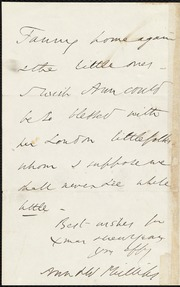 Fanny home again
& the little ones -
I wish Ann could
be so blessed with
her London little folks
whom I suppose we
shall never see while
little -
Best wishes for
Xmas & new year
Yrs affy
Wendell Phillips